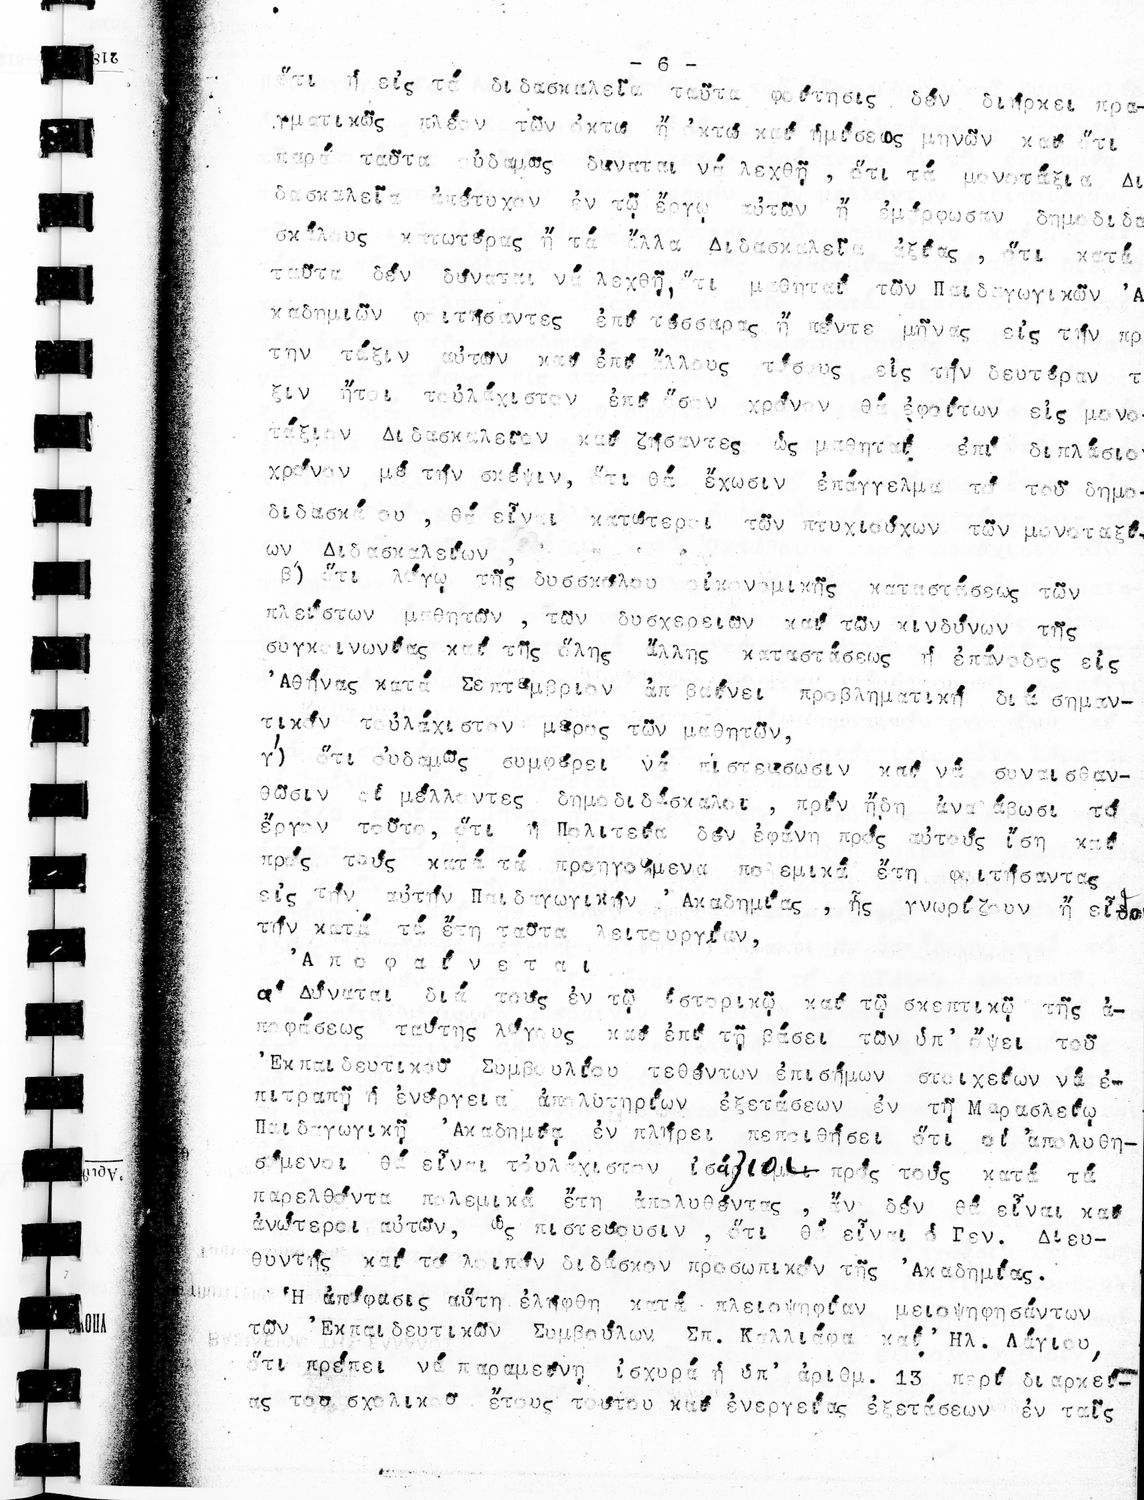 - 6 -
ὅτι ἡ εἰς τά διδασκαλεῖα ταῦτα φοίτησις δέν διήρκει πρα-
γματικῶς πλέον τῶν ὀκτώ ἤ ὀκτώ καί ἡμίσεος μηνῶν καί ὅτι
παρά ταῦτα οὐδαμῶς δύναται νά λεχθῇ , ὅτι τά μονοτάξια Δι
δασκαλεῖα ἀπέτυχον ἐν τῷ ἔργῳ αὐτῶν ἤ ἐμόρφωσαν δημοδιδα
σκάλους κατωτέρας ἤ τά ἄλλα Διδασκαλεῖα ἀξίας , ὅτι κατά
ταῦτα δέν δύναται νά λεχθῇ, ὅτι μαθηταί τῶν Παιδαγωγικῶν 'Α
καδημιῶν φοιτήσαντες ἐπί τέσσαρας ἤ πέντε μῆνας εἰς τήν πρ
την τάξιν αὐτῶν καί ἐπί ἄλλους τόσους εἰς τήν δευτέραν τ
ξιν ἤτοι τοὐλάχιστον ἐπί ὅσον χρόνον θά ἐφοίτων εἰς μονο-
τάξιον Διδασκαλεῖον καί ζήσαντες ὡς μαθηταί ἐπί διπλάσιον
χρόνον μέ τήν σκέψιν, ὅτι θά ἔχωσιν ἐπάγγελμα τό τοῦ δημο-
διδασκά ου , θά εἶναι κατώτεροι τῶν πτυχιούχων τῶν μονοταξί-
ων Διδασκαλείων ,
β') ὅτι λόγῳ τῆς δυσσκόλου οἰκονομικῆς καταστάσεως τῶν
πλείστων μαθητῶν , τῶν δυσχερειῶν καί τῶν κινδύνων τῆς
συγκοινωνίας καί τῆς ὅλης ἄλλης καταστάσεως ἡ ἐπάνοδος εἰς
'Αθήνας κατά Σεπτέμβριον ἀπ βαίνει προβληματική διά σημαν-
τικόν τοὐλάχιστον μέρος τῶν μαθητῶν,
γ') ὅτι οὐδαμῶς συμφέρει νά πιστεύσωσιν καί νά συναισθαν-
θῶσιν οἱ μέλλοντες δημοδιδάσκαλοι , πρίν ἤδη ἀνα άβωσι τό
ἔργον τοῦτο, ὅτι ἡ Πολιτεία δέν ἐφάνη πρός αὐτούς ἴση καί
πρός τούς κατά τά προηγούμενα πολεμικά ἔτη φοιτήσαντας
εἰς τήν αὐτήν Παιδαγωγικήν 'Ακαδημίας , ἧς γνωρίζουν ἤ εἶδο
τήν κατά τά ἔτη ταῦτα λειτουργίαν,
'Α π ο φ α ί ν ε τ α ι
α' Δύναται διά τούς ἐν τῷ ἱστορικῷ καί τῷ σκεπτικῷ τῆς ἀ-
ποφάσεως ταύτης λόγους καί ἐπί τῇ βάσει τῶν ὑπ' ὄψει τοῦ
'Εκπαιδευτικοῦ Συμβουλίου τεθέντων ἐπισήμων στοιχείων νά ἐ-
πιτραπῇ ἡ ἐνέργεια ἀπολυτηρίων ἐξετάσεων ἐν τῇ Μαρασλείῳ
Παιδαγωγικῇ 'Ακαδημίᾳ ἐν πλήρει πεποιθήσει ὅτι οἱ ἀπολυθη-
σόμενοι θά εἶναι τοὐλάχιστον ἰσάξιοι πρός τούς κατά τά
παρελθόντα πολεμικά ἔτη ἀπολυθέντας , ἄν δέν θά εἶναι καί
ἀνώτεροι αὐτῶν, ὡς πιστεύουσιν , ὅτι θά εἶναι ὁ Γεν. Διευ-
θυντής καί τό λοιπόν διδάσκον προσωπικόν τῆς 'Ακαδημίας.
'Η ἀπόφασις αὕτη ἐλήφθη κατά πλειοψηφίαν μειοψηφησάντων
τῶν 'Εκπαιδευτικῶν Συμβούλων Σπ. Καλλιάφα καί 'Ηλ. Λάγιου,
ὅτι πρέπει νά παραμείνῃ ἰσχυρά ἡ ὑπ' ἀριθμ. 13 περί διαρκεί-
ας τοῦ σχολικοῦ ἔτους τούτου καί ἐνεργείας ἐξετάσεων ἐν ταῖς